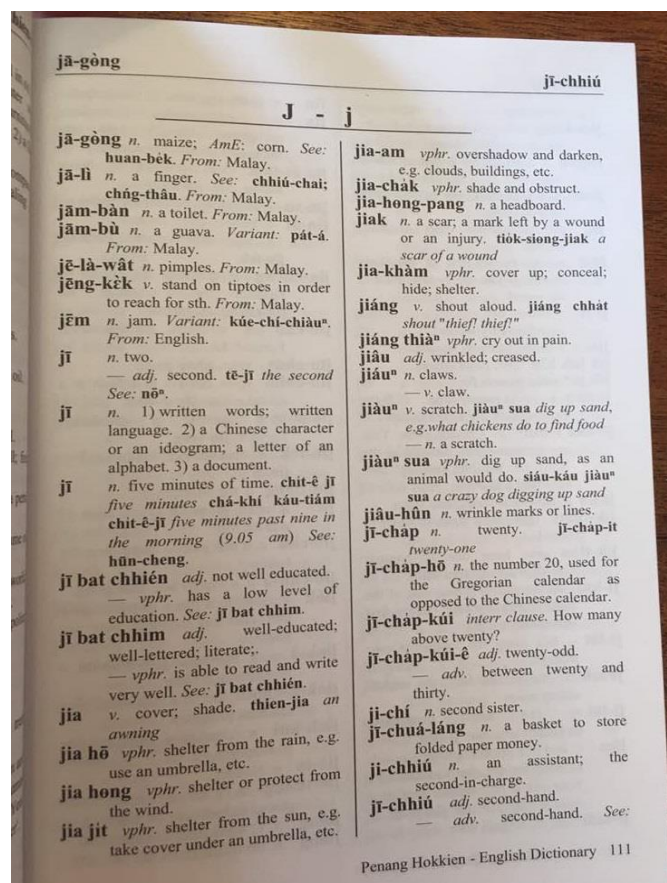 jā-gòng
jī-chhiú
J - j
jā-gòng n. maize; AmE: corn. See:
huan-be̍k. From: Malay.
jā-lì n. a finger. See: chhiú-chai;
chńg-thâu. From: Malay.
jām-bàn n. a toilet. From: Malay.
jām-bù n. a guava. Variant: pát-á.
From: Malay.
jē-là-wât n. pimples. From: Malay.
jēng-kɛ̀k v. stand on tiptoes in order
to reach for sth. From: Malay.
jɛ̄m n. jam. Variant: kúe-chí-chiàuⁿ.
From: English.
jī n. two.
— adj. second. tē-jī the second
See: nōⁿ.
jī n. 1) written words; written
language. 2) a Chinese character
or an ideogram; a letter of an
alphabet. 3) a document.
jī n. five minutes of time. chi̍t-ê jī
five minutes chá-khí káu-tiám
chi̍t-ê-jī five minutes past nine in
the morning (9.05 am) See:
hūn-cheng.
jī bat chhién adj. not well educated.
— vphr. has a low level of
education. See: jī bat chhim.
jī bat chhim adj. well-educated;
well-lettered; literate;.
— vphr. is able to read and write
very well. See: jī bat chhién.
jia v. cover; shade. thien-jia an
awning
jia hō vphr. shelter from the rain, e.g.
use an umbrella, etc.
jia hong vphr. shelter or protect from
the wind.
jia ji̍t vphr. shelter from the sun, e.g.
take cover under an umbrella, etc.
jia-am vphr. overshadow and darken,
e.g. clouds, buildings, etc.
jia-cha̍k vphr. shade and obstruct.
jia-hong-pang n. a headboard.
jiak n. a scar; a mark left by a wound
or an injury. tio̍k-siong-jiak a
scar of a wound
jia-khàm vphr. cover up; conceal;
hide; shelter.
jiáng v. shout aloud. jiáng chha̍t
shout "thief! thief!"
jiáng thiàⁿ vphr. cry out in pain.
jiâu adj. wrinkled; creased.
jiáuⁿ n. claws.
— v. claw.
jiàuⁿ v. scratch. jiàuⁿ sua dig up sand,
e.g.what chickens do to find food
— n. a scratch.
jiàuⁿ sua vphr. dig up sand, as an
animal would do. siáu-káu jiàuⁿ
sua a crazy dog digging up sand
jiâu-hûn n. wrinkle marks or lines.
jī-cha̍p n. twenty. jī-cha̍p-it
twenty-one
jī-cha̍p-hō n. the number 20, used for
the Gregorian calendar as
opposed to the Chinese calendar.
jī-cha̍p-kúi interr clause. How many
above twenty?
jī-cha̍p-kúi-ê adj. twenty-odd.
— adv. between twenty and
thirty.
ji-chí n. second sister.
jī-chuá-láng n. a basket to store
folded paper money.
ji-chhiú n. an assistant; the
second-in-charge.
jī-chhiú adj. second-hand.
— adv. second-hand. See:
Penang Hokkien - English Dictionary 111